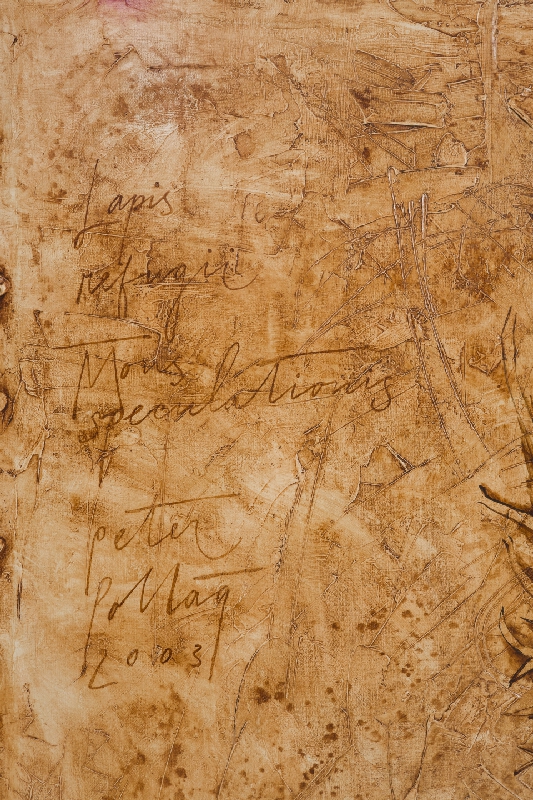 Lapis
refugii
Mons
speculationis
peter
Pollag
2003